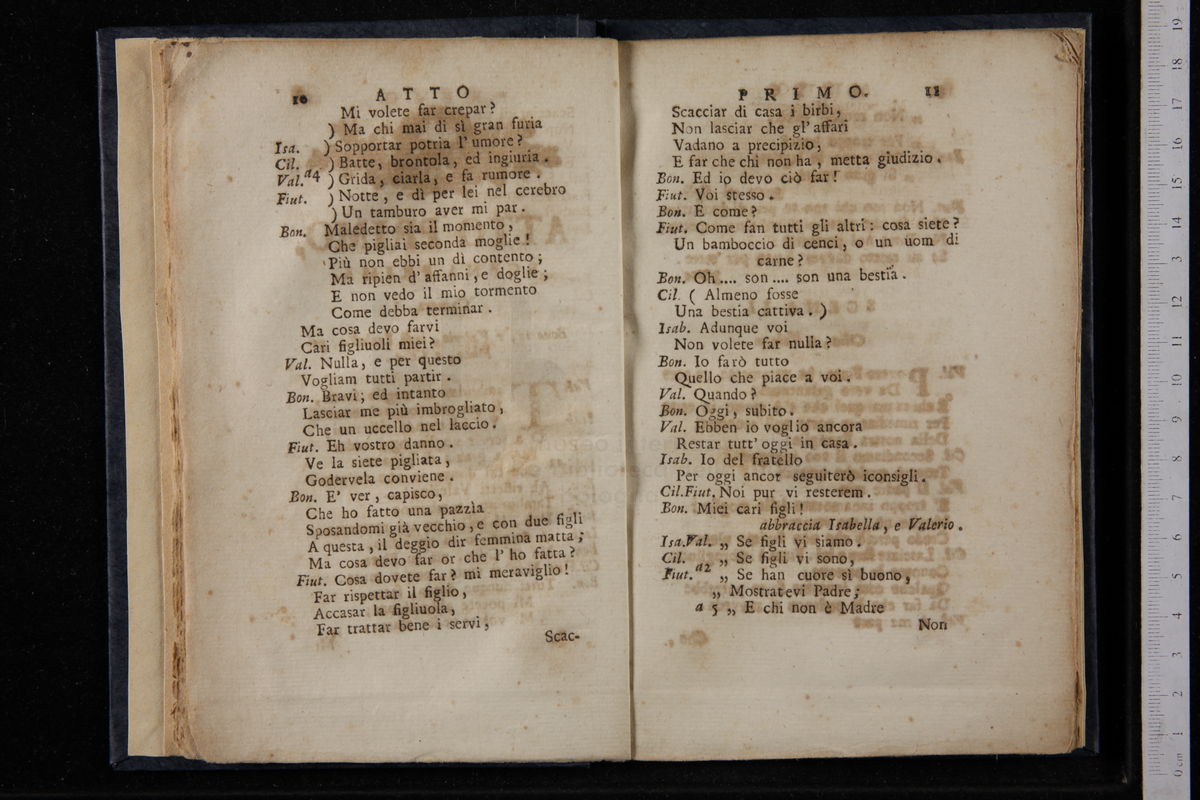 10 ATTO
Mi volete far crepar?
) Ma chi mai di sì gran furia
Isa. ) Sopportar potria l'umore?
Cil. ) Batte, brontola, ed ingiuria.
Val. a4 ) Grida, ciarla, e fa rumore.
Fiut. ) Notte, e dì per lei nel cerebro
) Un tamburo aver mi par.
Bon. Maledetto sia il momento,
Che pigliai seconda moglie!
Più non ebbi un dì contento;
Ma ripien d'affanni, e doglie;
E non vedo il mio tormento
Come debba terminar.
Ma cosa devo farvi
Cari figliuoli miei?
Val. Nulla, e per questo
Vogliam tutti partir.
Bon. Bravi; ed intanto
Lasciar me più imbrogliato,
Che un uccello nel laccio.
Fiut. Eh vostro danno.
Ve la siete pigliata,
Godervela conviene.
Bon. E' ver, capisco,
Che ho fatto una pazzìa
Sposandomi già vecchio, e con due figli
A questa, il deggio dir femmina matta;
Ma cosa devo far or che l'ho fatta?
Fiut. Cosa dovete far? mi meraviglio!
Far rispettar il figlio,
Accasar la figliuola,
Far trattar bene i servi,
Scac-
PRIMO. 11
Scacciar di casa i birbi,
Non lasciar che gl'affari
Vadano a precipizio,
E far che chi non ha, metta giudizio.
Bon. Ed io devo ciò far!
Fiut. Voi stesso.
Bon. E come?
Fiut. Come fan tutti gli altri: cosa siete?
Un bamboccio di cenci, o un uom di
carne?
Bon. Oh.... son.... son una bestia.
Cil. ( Almeno fosse
Una bestia cattiva. )
Isab. Adunque voi
Non volete far nulla?
Bon. Io farò tutto
Quello che piace a voi.
Val. Quando?
Bon. Oggi, subito.
Val. Ebben io voglio ancora
Restar tutt'oggi in casa.
Isab. Io del fratello
Per oggi ancor seguiterò iconsigli.
Cil.Fiut. Noi pur vi resterem.
Bon. Miei cari figli!
abbraccia Isabella, e Valerio.
Isa.Val. „ Se figli vi siamo.
Cil. „ Se figli vi sono,
Fiut. a2 „ Se han cuore sì buono,
„ Mostratevi Padre;
a 5 „ E chi non è Madre
Non